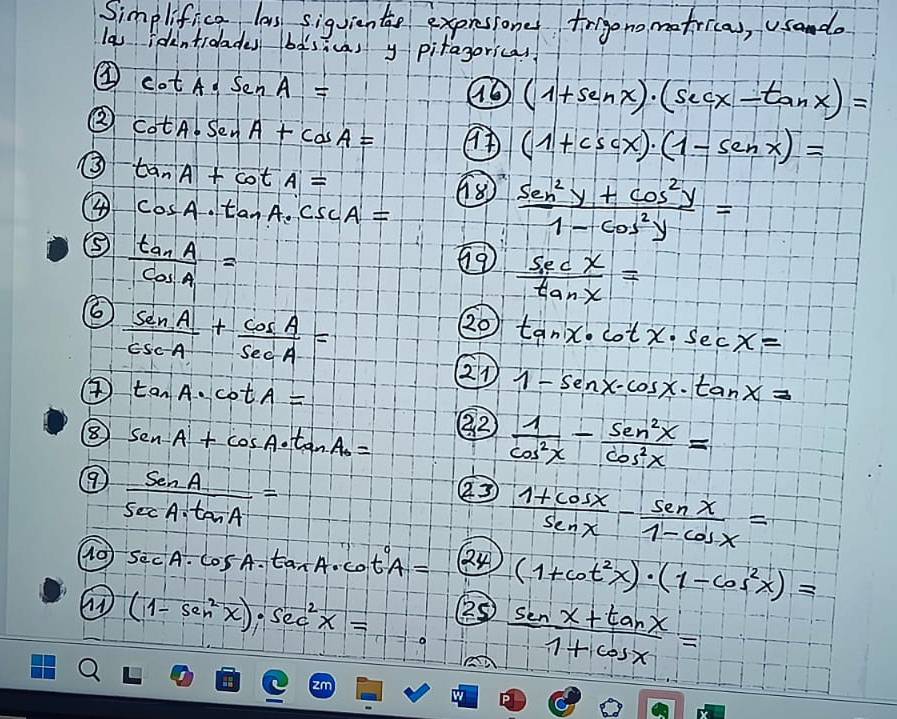 Simplifica las siguientes expresiones trigonomatricas, usando
las identidades básicas y pitagoricas.
① cot A · Sen A =
② cot A · Sen A + cos A =
③ tan A + cot A =
④ cos A · tan A · csc A =
⑤ tan A / cos A =
⑥ sen A / csc A + cos A / sec A =
⑦ tan A · cot A =
⑧ sen A + cos A · tan A =
⑨ sen A / sec A · tan A =
⑩ sec A · cos A · tan A · cot A =
⑪ (1 - sen² x) · sec² x =
⑯ (1 + sen x) · (sec x - tan x) =
⑰ (1 + csc x) · (1 - sen x) =
⑱ sen² y + cos² y / 1 - cos² y =
⑲ sec x / tan x =
⑳ tan x · cot x · sec x =
㉑ 1 - sen x · cos x · tan x =
㉒ 1 / cos² x - sen² x / cos² x =
㉓ 1 + cos x / sen x - sen x / 1 - cos x =
㉔ (1 + cot² x) · (1 - cos² x) =
㉕ sen x + tan x / 1 + cos x =
zm
W
P
X